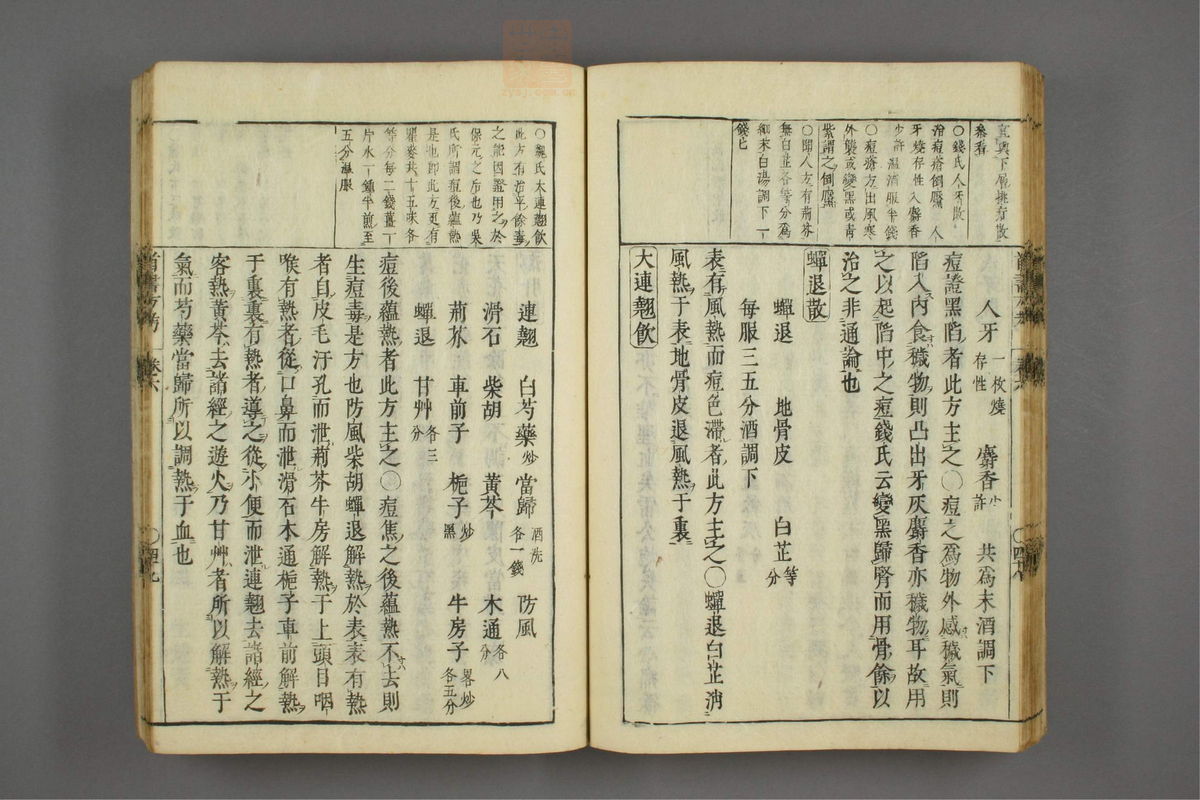 宜與下層排奇散
參看
○錢氏人牙散
治痘瘡倒靨 人
牙燒存性入麝香
少許 温酒服半錢
○痘瘡方出風寒
外襲或變黑或青
紫謂之倒靨
無白芷各等分爲
細末白湯調下一
錢匕
人牙 一枚燒存性 麝香 少許 共爲末酒調下
痘證黑陷者此方主之○痘之爲物外感穢氣則
陷入内食穢物則凸出牙灰麝香亦穢物耳故用
之以起陷中之痘錢氏云變黑歸腎而用骨餘以
治之非通論也
蟬退散
蟬退 地骨皮 白芷 等分
每服三五分酒調下
表有風熱而痘色滯者此方主之○蟬退白芷消
風熱于表地骨皮退風熱于裏
大連翹飲
○魏氏大連翹飲
此方有治平餘毒
之能因證用之於
保元之后也乃吳
氏所謂痘後蘊熱
是也即此方更有
瞿麥共十五味各
等分每二錢薑一
片水一鍾半煎至
五分温服
連翹 白芍藥 炒 當歸 酒洗各一錢 防風
滑石 柴胡 黃芩 木通 各八分
荊芥 車前子 梔子 炒黑 牛房子 畧炒各五分
蟬退 甘艸 各三分
痘後蘊熱者此方主之○痘焦之後蘊熱不去則
生痘毒是方也防風柴胡蟬退解熱於表表有熱
者自皮毛汗孔而泄荊芥牛房解熱于上頭目咽
喉有熱者從口鼻而泄滑石木通梔子車前解熱
于裏裏有熱者導之從小便而泄連翹去諸經之
客熱黃芩去諸經之遊火乃甘艸者所以解熱于
氣而芍藥當歸所以調熱于血也